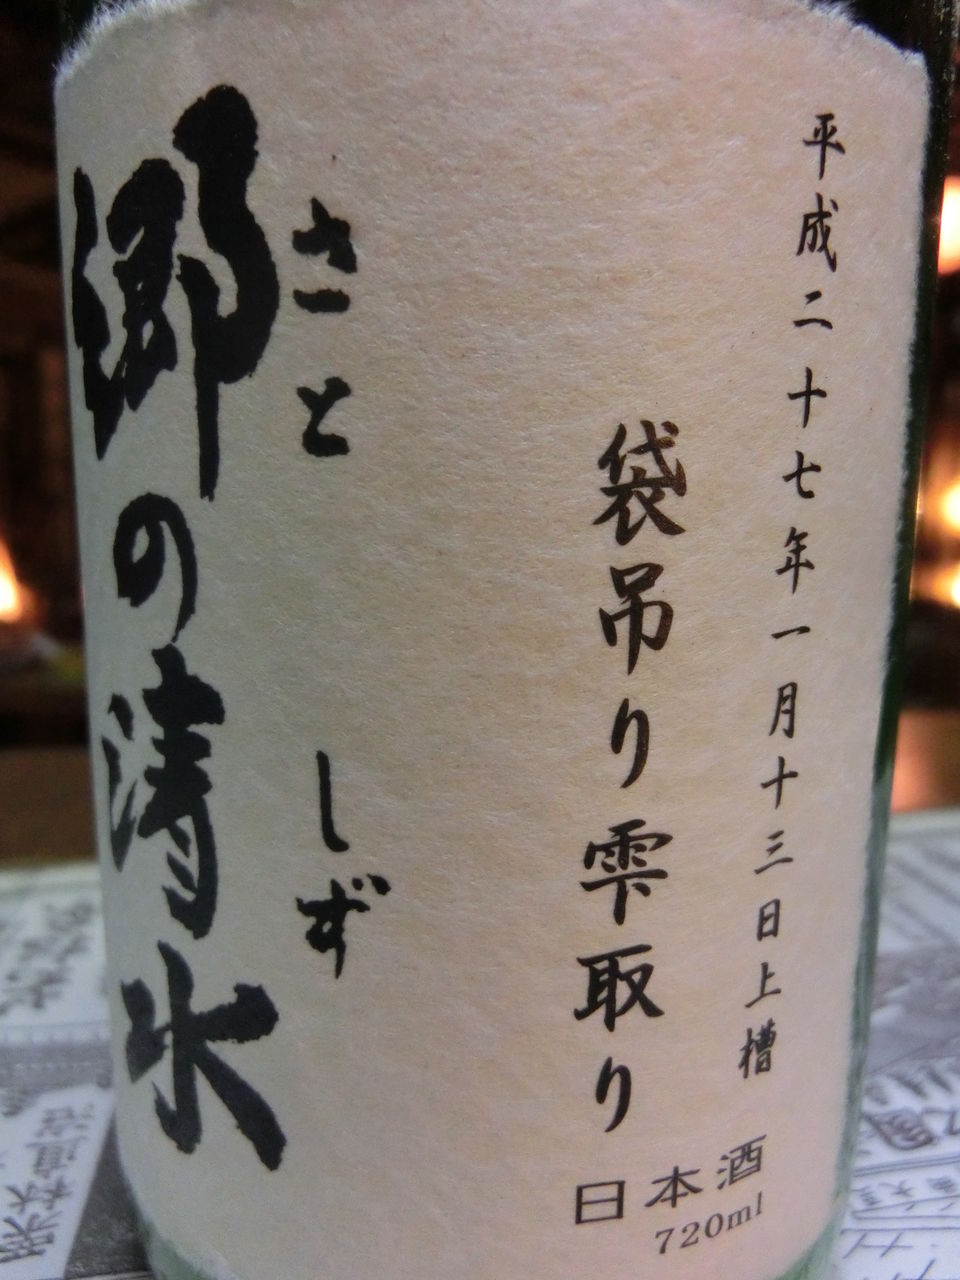 平成二十七年一月十三日上槽
袋吊り雫取り
さと しず
郷の清水
日本酒
720ml